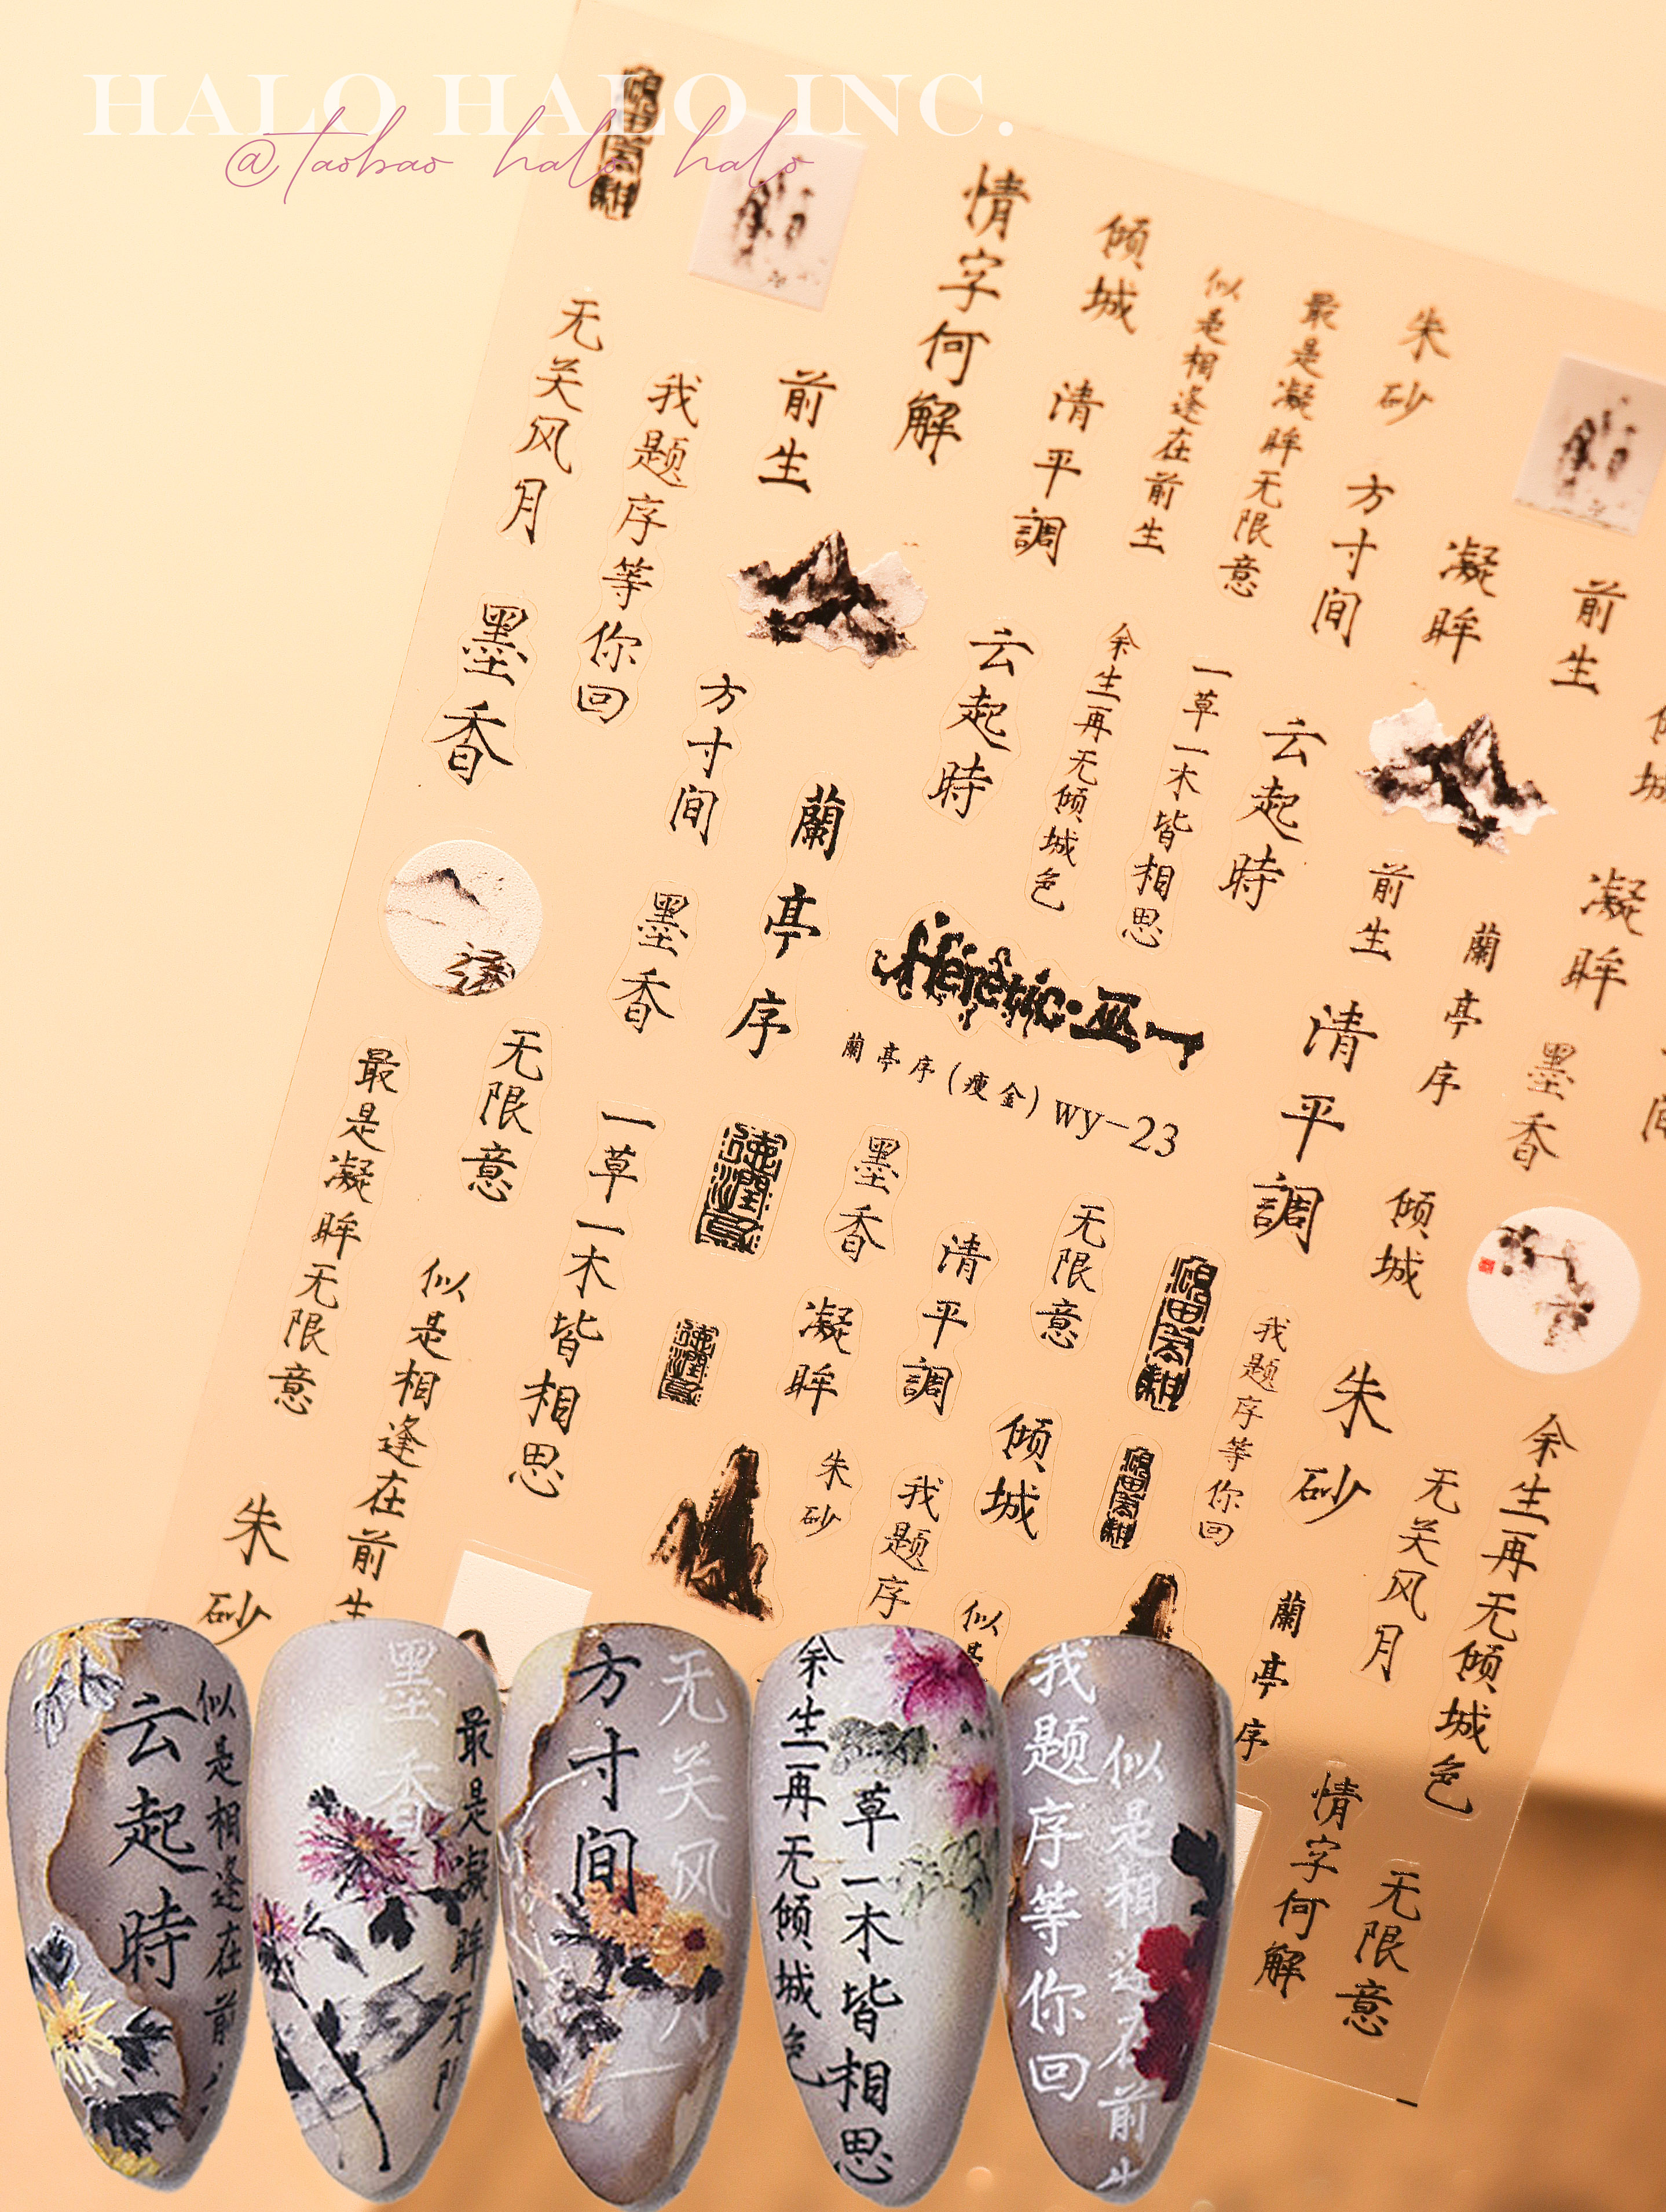 HALO HALO INC.
@taobao halo halo
情字何解
倾城
似是相逢在前生
最是凝眸无限意
朱砂
无关风月
我题序等你回
前生
清平調
方寸间
凝眸
前生
墨香
方寸间
云起時
余生再无倾城色
一草一木皆相思
云起時
倾城
蘭亭序
墨香
前生
蘭亭序
凝眸
Heretic·巫一
蘭亭序(瘦金)wy-23
清平調
墨香
无限意
最是凝眸无限意
一草一木皆相思
墨香
清平調
无限意
倾城
似是相逢在前生
凝眸
我题序等你回
朱砂
朱砂
倾城
朱砂
我题序
似是
蘭亭序
无关风月
余生再无倾城色
情字何解
无限意
云起時
似是相逢在前
墨香
最是凝眸无限
方寸间
无关风月
余生再无倾城色
草一木皆相思
我题序等你回
似是相逢在前生